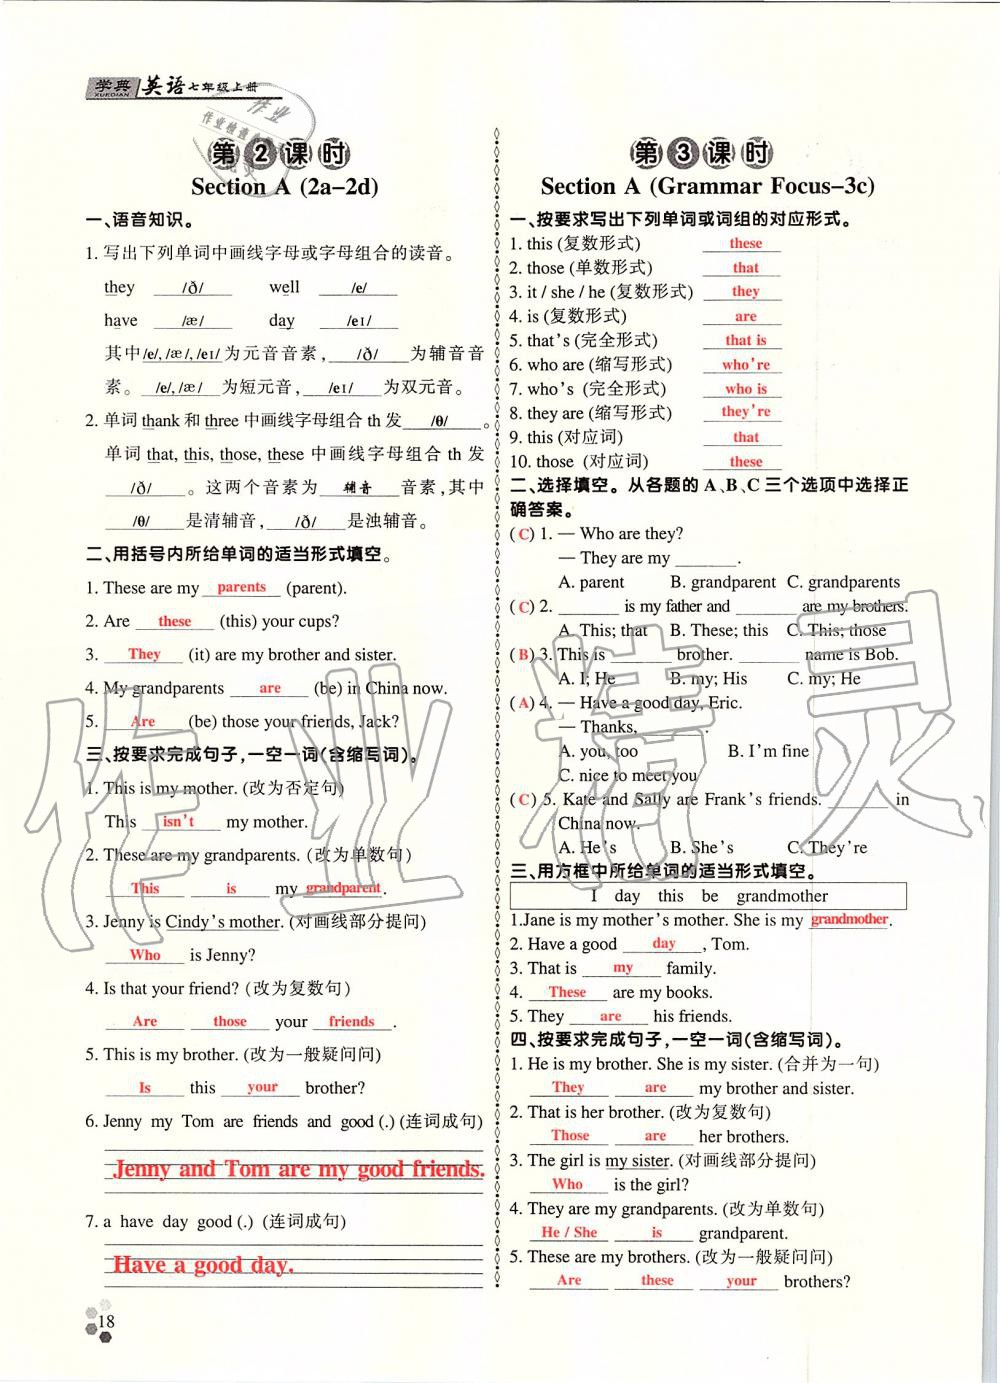 学典 英语七年级上册
XUEDIAN
第2课时
Section A (2a-2d)
一、语音知识。
1. 写出下列单词中画线字母或字母组合的读音。
they /ð/ well /e/
have /æ/ day /eɪ/
其中/e/, /æ/, /eɪ/为元音音素， /ð/ 为辅音音
素。 /e/, /æ/ 为短元音， /eɪ/ 为双元音。
2. 单词 thank 和 three 中画线字母组合 th 发 /θ/ 。
单词 that, this, those, these 中画线字母组合 th 发
/ð/ 。这两个音素为 辅音 音素，其中
/θ/ 是清辅音， /ð/ 是浊辅音。
二、用括号内所给单词的适当形式填空。
1. These are my parents (parent).
2. Are these (this) your cups?
3. They (it) are my brother and sister.
4. My grandparents are (be) in China now.
5. Are (be) those your friends, Jack?
三、按要求完成句子，一空一词(含缩写词)。
1. This is my mother. (改为否定句)
This isn't my mother.
2. These are my grandparents. (改为单数句)
This is my grandparent.
3. Jenny is Cindy's mother. (对画线部分提问)
Who is Jenny?
4. Is that your friend? (改为复数句)
Are those your friends .
5. This is my brother. (改为一般疑问问)
Is this your brother?
6. Jenny my Tom are friends and good (.) (连词成句)
Jenny and Tom are my good friends.
7. a have day good (.) (连词成句)
Have a good day.
18
第3课时
Section A (Grammar Focus-3c)
一、按要求写出下列单词或词组的对应形式。
1. this (复数形式) these
2. those (单数形式) that
3. it / she / he (复数形式) they
4. is (复数形式) are
5. that's (完全形式) that is
6. who are (缩写形式) who're
7. who's (完全形式) who is
8. they are (缩写形式) they're
9. this (对应词) that
10. those (对应词) these
二、选择填空。从各题的 A、B、C 三个选项中选择正
确答案。
( C ) 1. — Who are they?
— They are my ______.
A. parent B. grandparent C. grandparents
( C ) 2. ______ is my father and ______ are my brothers.
A. This; that B. These; this C. This; those
( B ) 3. This is ______ brother. ______ name is Bob.
A. I; He B. my; His C. my; He
( A ) 4. — Have a good day, Eric.
— Thanks, ______.
A. you, too B. I'm fine
C. nice to meet you
( C ) 5. Kate and Sally are Frank's friends. ______ in
China now.
A. He's B. She's C. They're
三、用方框中所给单词的适当形式填空。
I day this be grandmother
1.Jane is my mother's mother. She is my grandmother.
2. Have a good day , Tom.
3. That is my family.
4. These are my books.
5. They are his friends.
四、按要求完成句子，一空一词(含缩写词)。
1. He is my brother. She is my sister. (合并为一句)
They are my brother and sister.
2. That is her brother. (改为复数句)
Those are her brothers.
3. The girl is my sister. (对画线部分提问)
Who is the girl?
4. They are my grandparents. (改为单数句)
He / She is grandparent.
5. These are my brothers. (改为一般疑问问)
Are these your brothers?
作业精灵